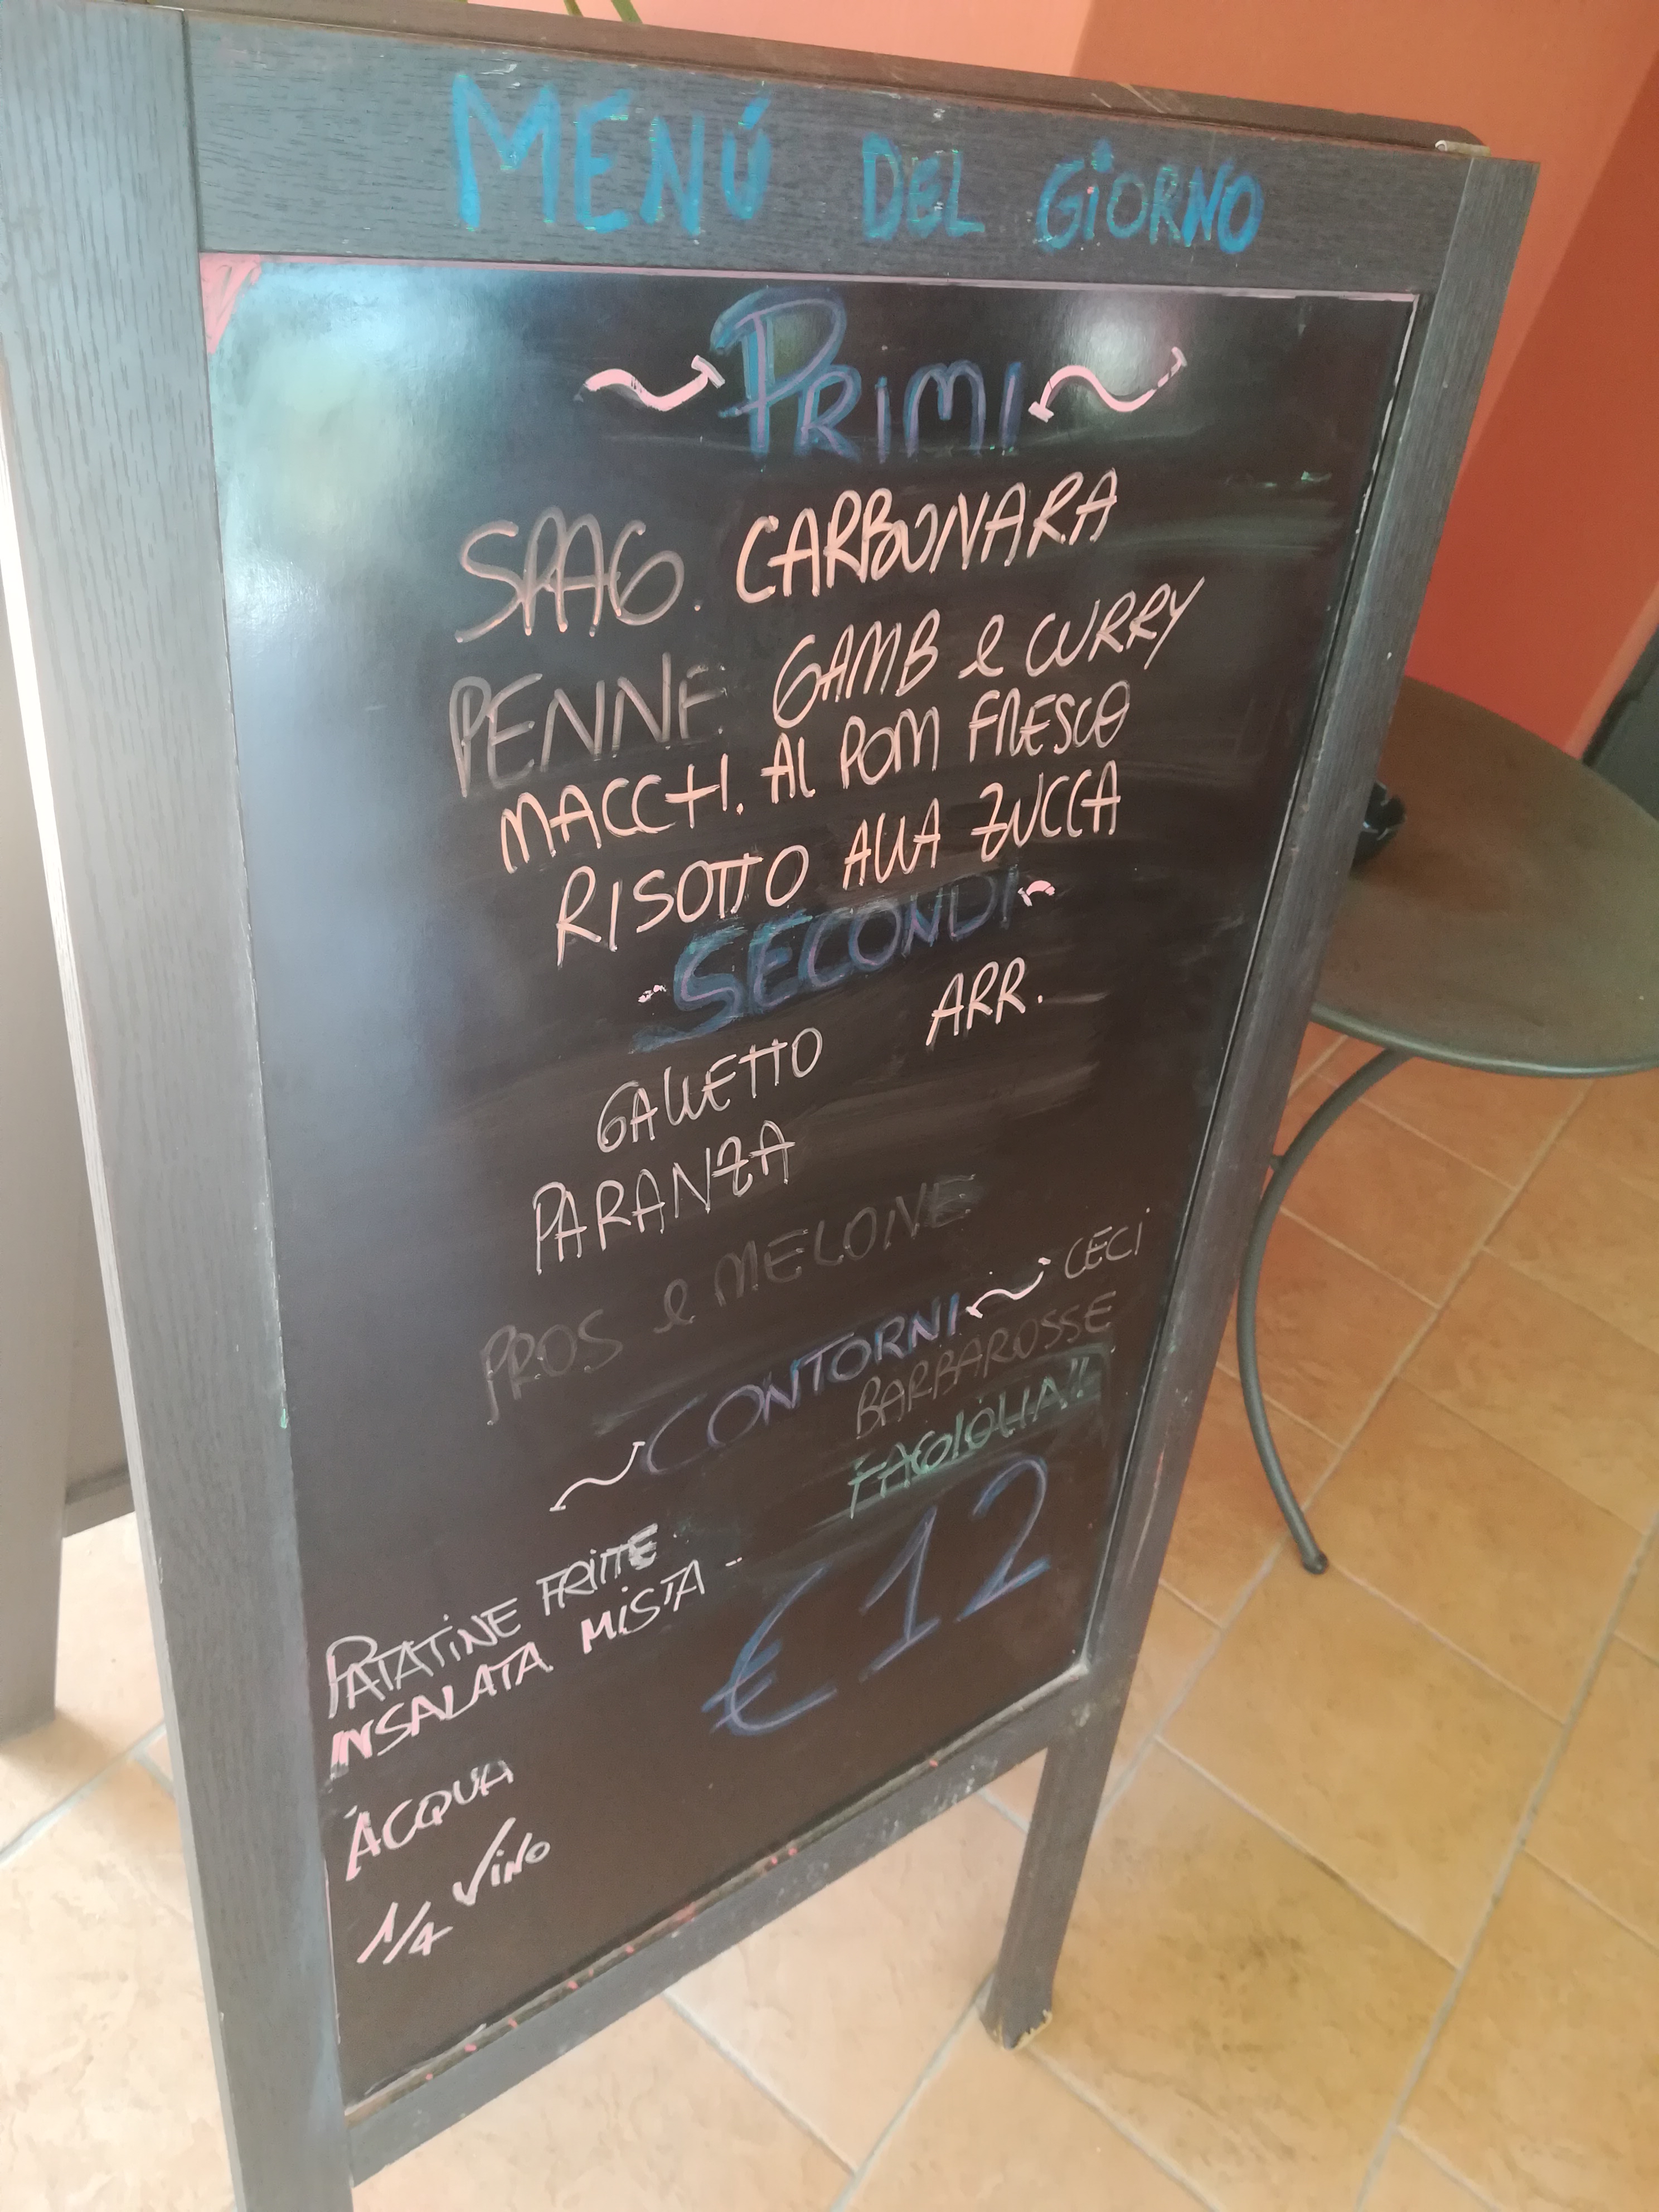 MENÚ DEL GIORNO
PRIMI
SPAG. CARBONARA
PENNE GAMB e CURRY
MACCHI. AL POM FRESCO
RISOTTO ALLA ZUCCA
SECONDI
GALLETTO ARR.
PARANZA
PROS e MELONE
CONTORNI
CECI
BARBAROSSE
FAGIOLINI
PATATINE FRITTE
INSALATA MISTA
€12
ACQUA
1/4 VINO